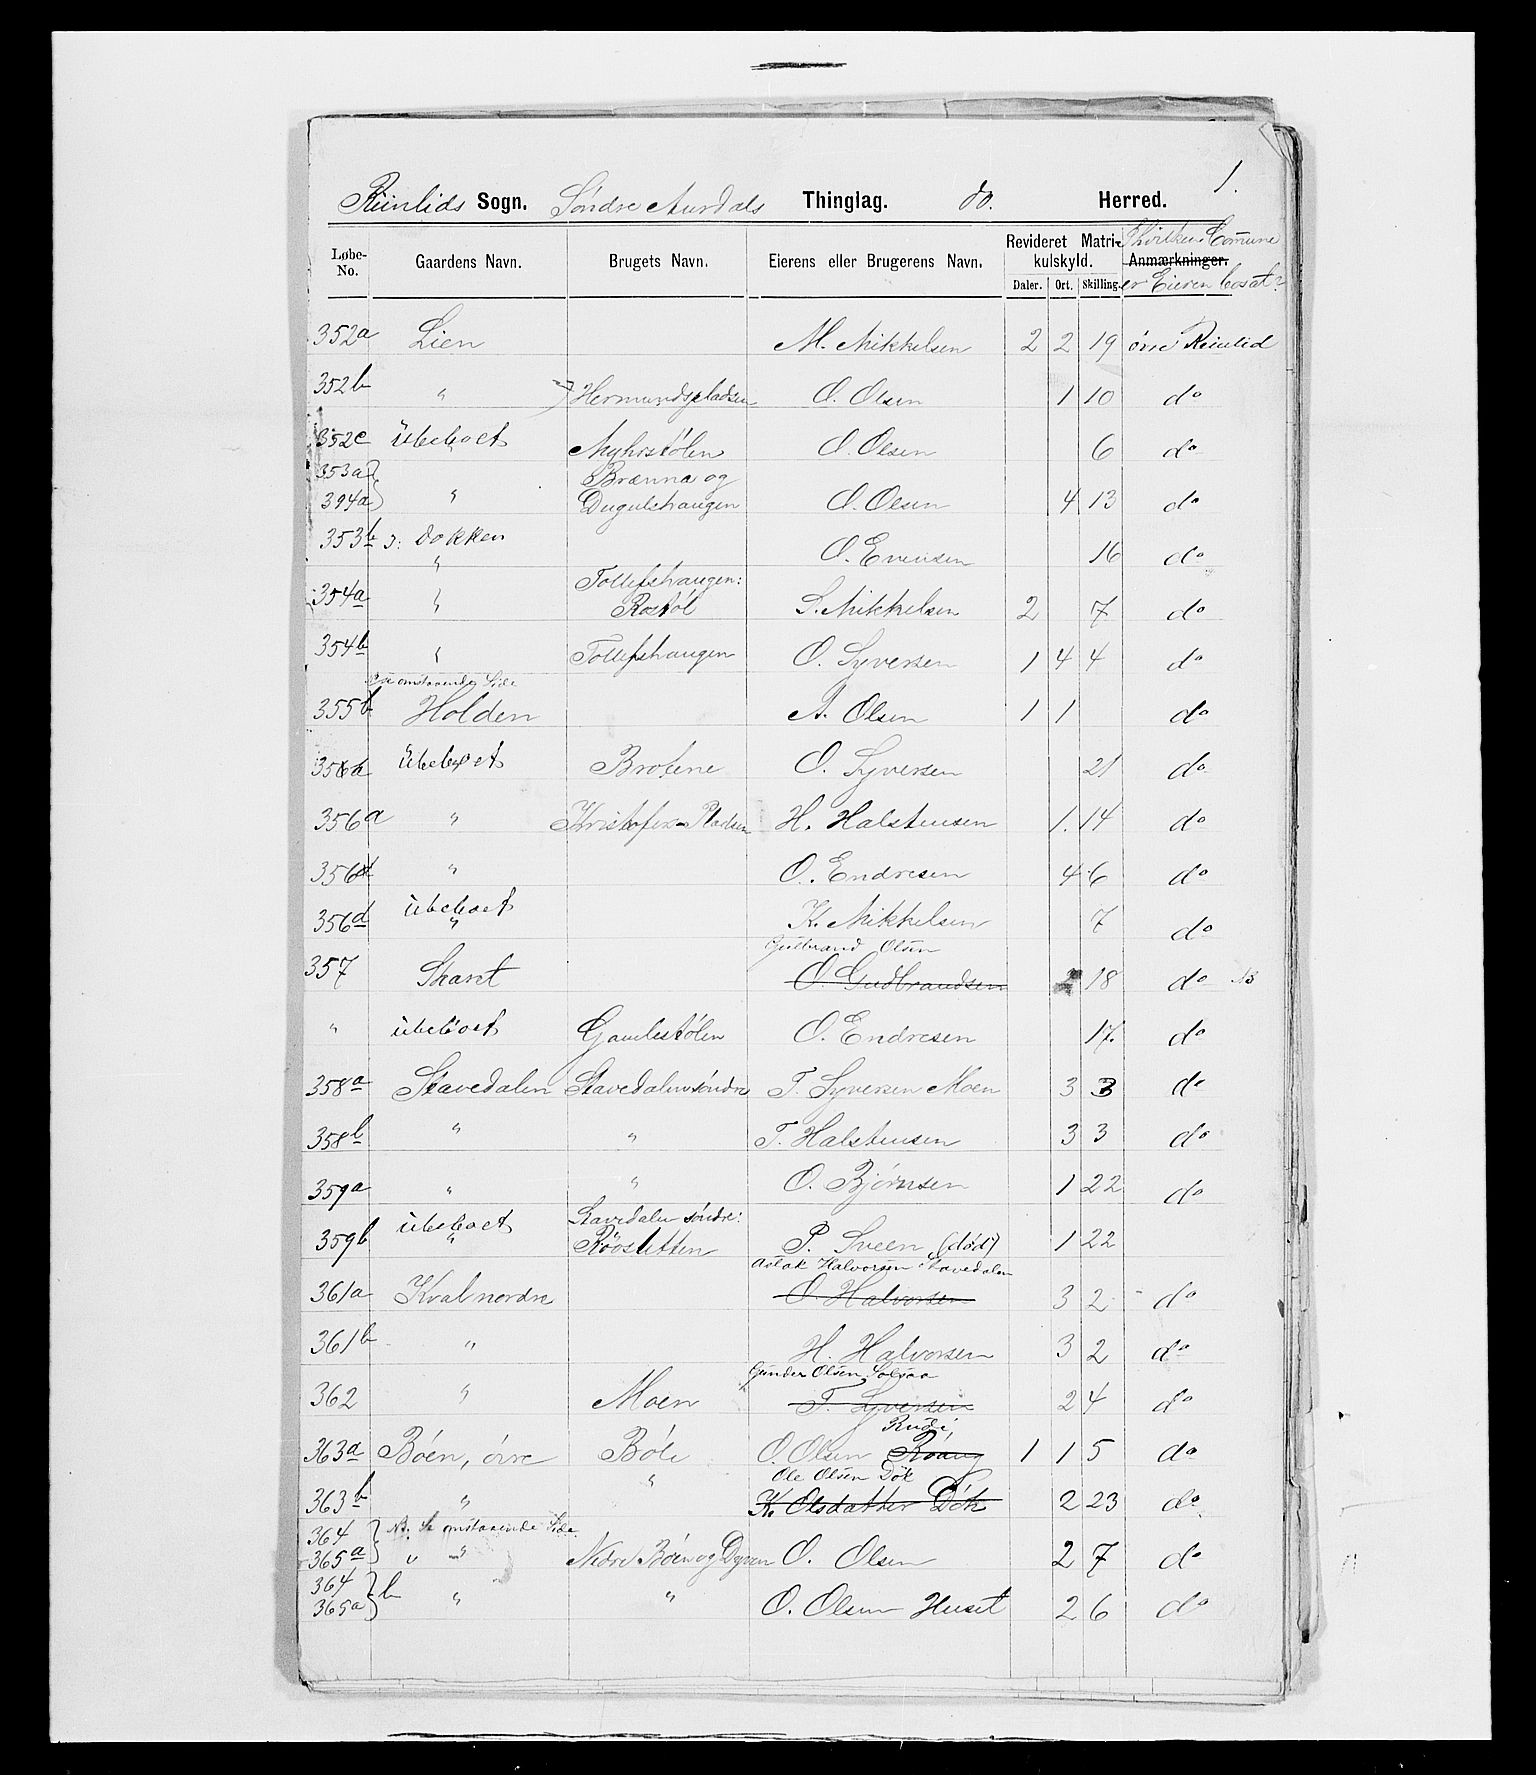 1.
Reinlids Sogn. Søndre Aurdals Thinglag. do. Herred.
Løbe-No. Gaardens Navn. Brugets Navn. Eierens eller Brugerens Navn. Revideret Matrikulskyld. Daler. Ort. Skilling. I hvilken Comune Anmærkninger. er Eieren bosat?
352a Lien M. Mikkelsen 2 2 19 øvre Reinlid
352b " Hermundspladsen O. Olsen 1 10 do
352c Ubeboet " Myhrstølen O. Olsen 6 do
353a Brænna og
394a " Dugulshaugen O. Olsen 4 13 do
353b Dokken " O. Evensen 16 do
354a " Tollefshaugen: Rostøl S. Mikkelsen 2 7 do
354b " Tollefshaugen O. Syversen 1 4 4 do
Se omstaaende Side
355b Holden A. Olsen 1 1 do
356a Ubeboet Brotene O. Syversen 21 do
356a " Kristofers-Pladsen H. Halstensen 1. 14 do
356 " O. Endresen 4 6 do
356d Ubeboet " K. Mikkelsen 7 do
Gulbrand Olsen
357 Skaret O. Gudbrandsen 18 do
" Ubeboet Gamlestølen O. Endresen 17. do
358a Stavedalen Stavedalen søndre T. Syversen Moen 3 3 do
358b " " T. Halstensen 3 3 do
359a " " O. Bjørnsen 1 22 do
359b Ubeboet " Stavedalen søndre: Røosletten P. Sveen (død) 1 22
Aslak Halvorsen Stavedalen
361a Kval nordre O. Halvorsen 3 2 do
361b " H. Halvorsen 3 2 do
Gunder Olsen
362 " Moen T. Syversen 2 4 do
Rudi,
363a Bøen, øvre Bøle O. Olsen 1 1 5 do
Ole Olsen Døk
363b " " K. Olsdatter Døk 2 23 do
364 NB. Se omstaaende Side
365a " " Nedre Bøen og Dyven O. Olsen 2 7 do
364
365a b " " O. Olsen Huset 2 6 do